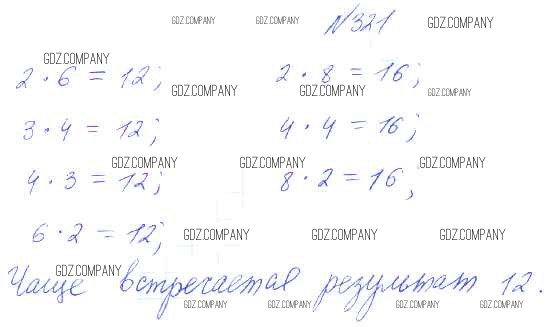 №321
2 · 6 = 12; 2 · 8 = 16;
3 · 4 = 12; 4 · 4 = 16;
4 · 3 = 12; 8 · 2 = 16,
6 · 2 = 12;
Чаще встречается результат 12.
GDZ.COMPANY GDZ.COMPANY GDZ.COMPANY
GDZ.COMPANY
GDZ.COMPANY GDZ.COMPANY GDZ.COMPANY
GDZ.COMPANY GDZ.COMPANY GDZ.COMPANY
GDZ.COMPANY GDZ.COMPANY GDZ.COMPANY
GDZ.COMPANY
GDZ.COMPANY GDZ.COMPANY GDZ.COMPANY GDZ.COMPANY